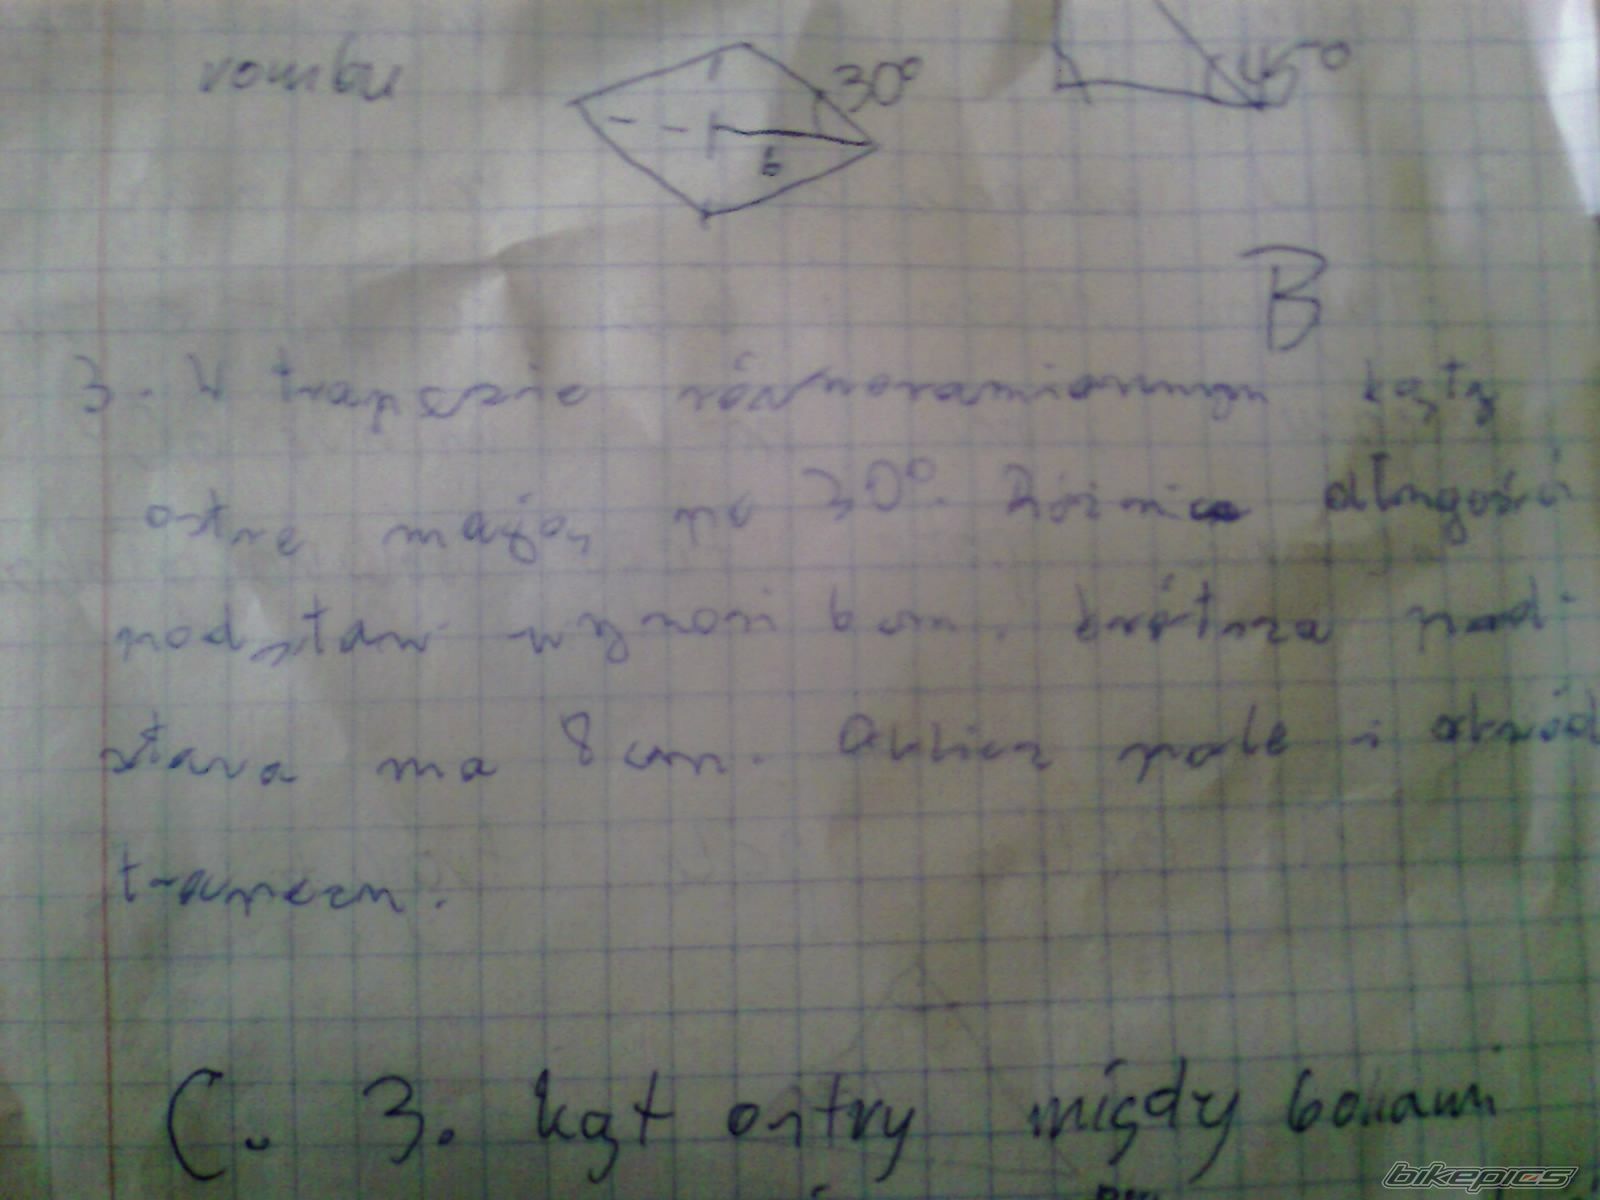 rombu
30°
45°
6
B
3. W trapezie równoramiennym kąty
ostre mają po 30°. Różnica długości
podstaw wynosi 6cm. krótsza pod-
stawa ma 8cm. Oblicz pole i obwód
trapezu.
C. 3. kąt ostry między bokami
bikepics